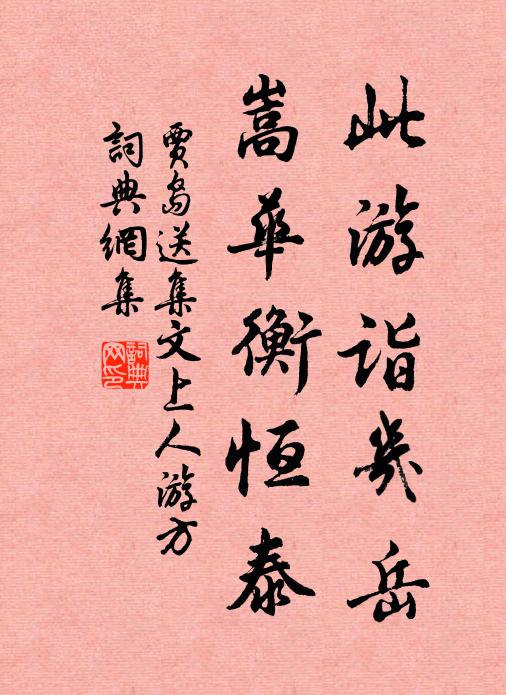 此游詣幾岳
嵩華衡恒泰
賈島送集文上人游方
詞典網集
詞典网印